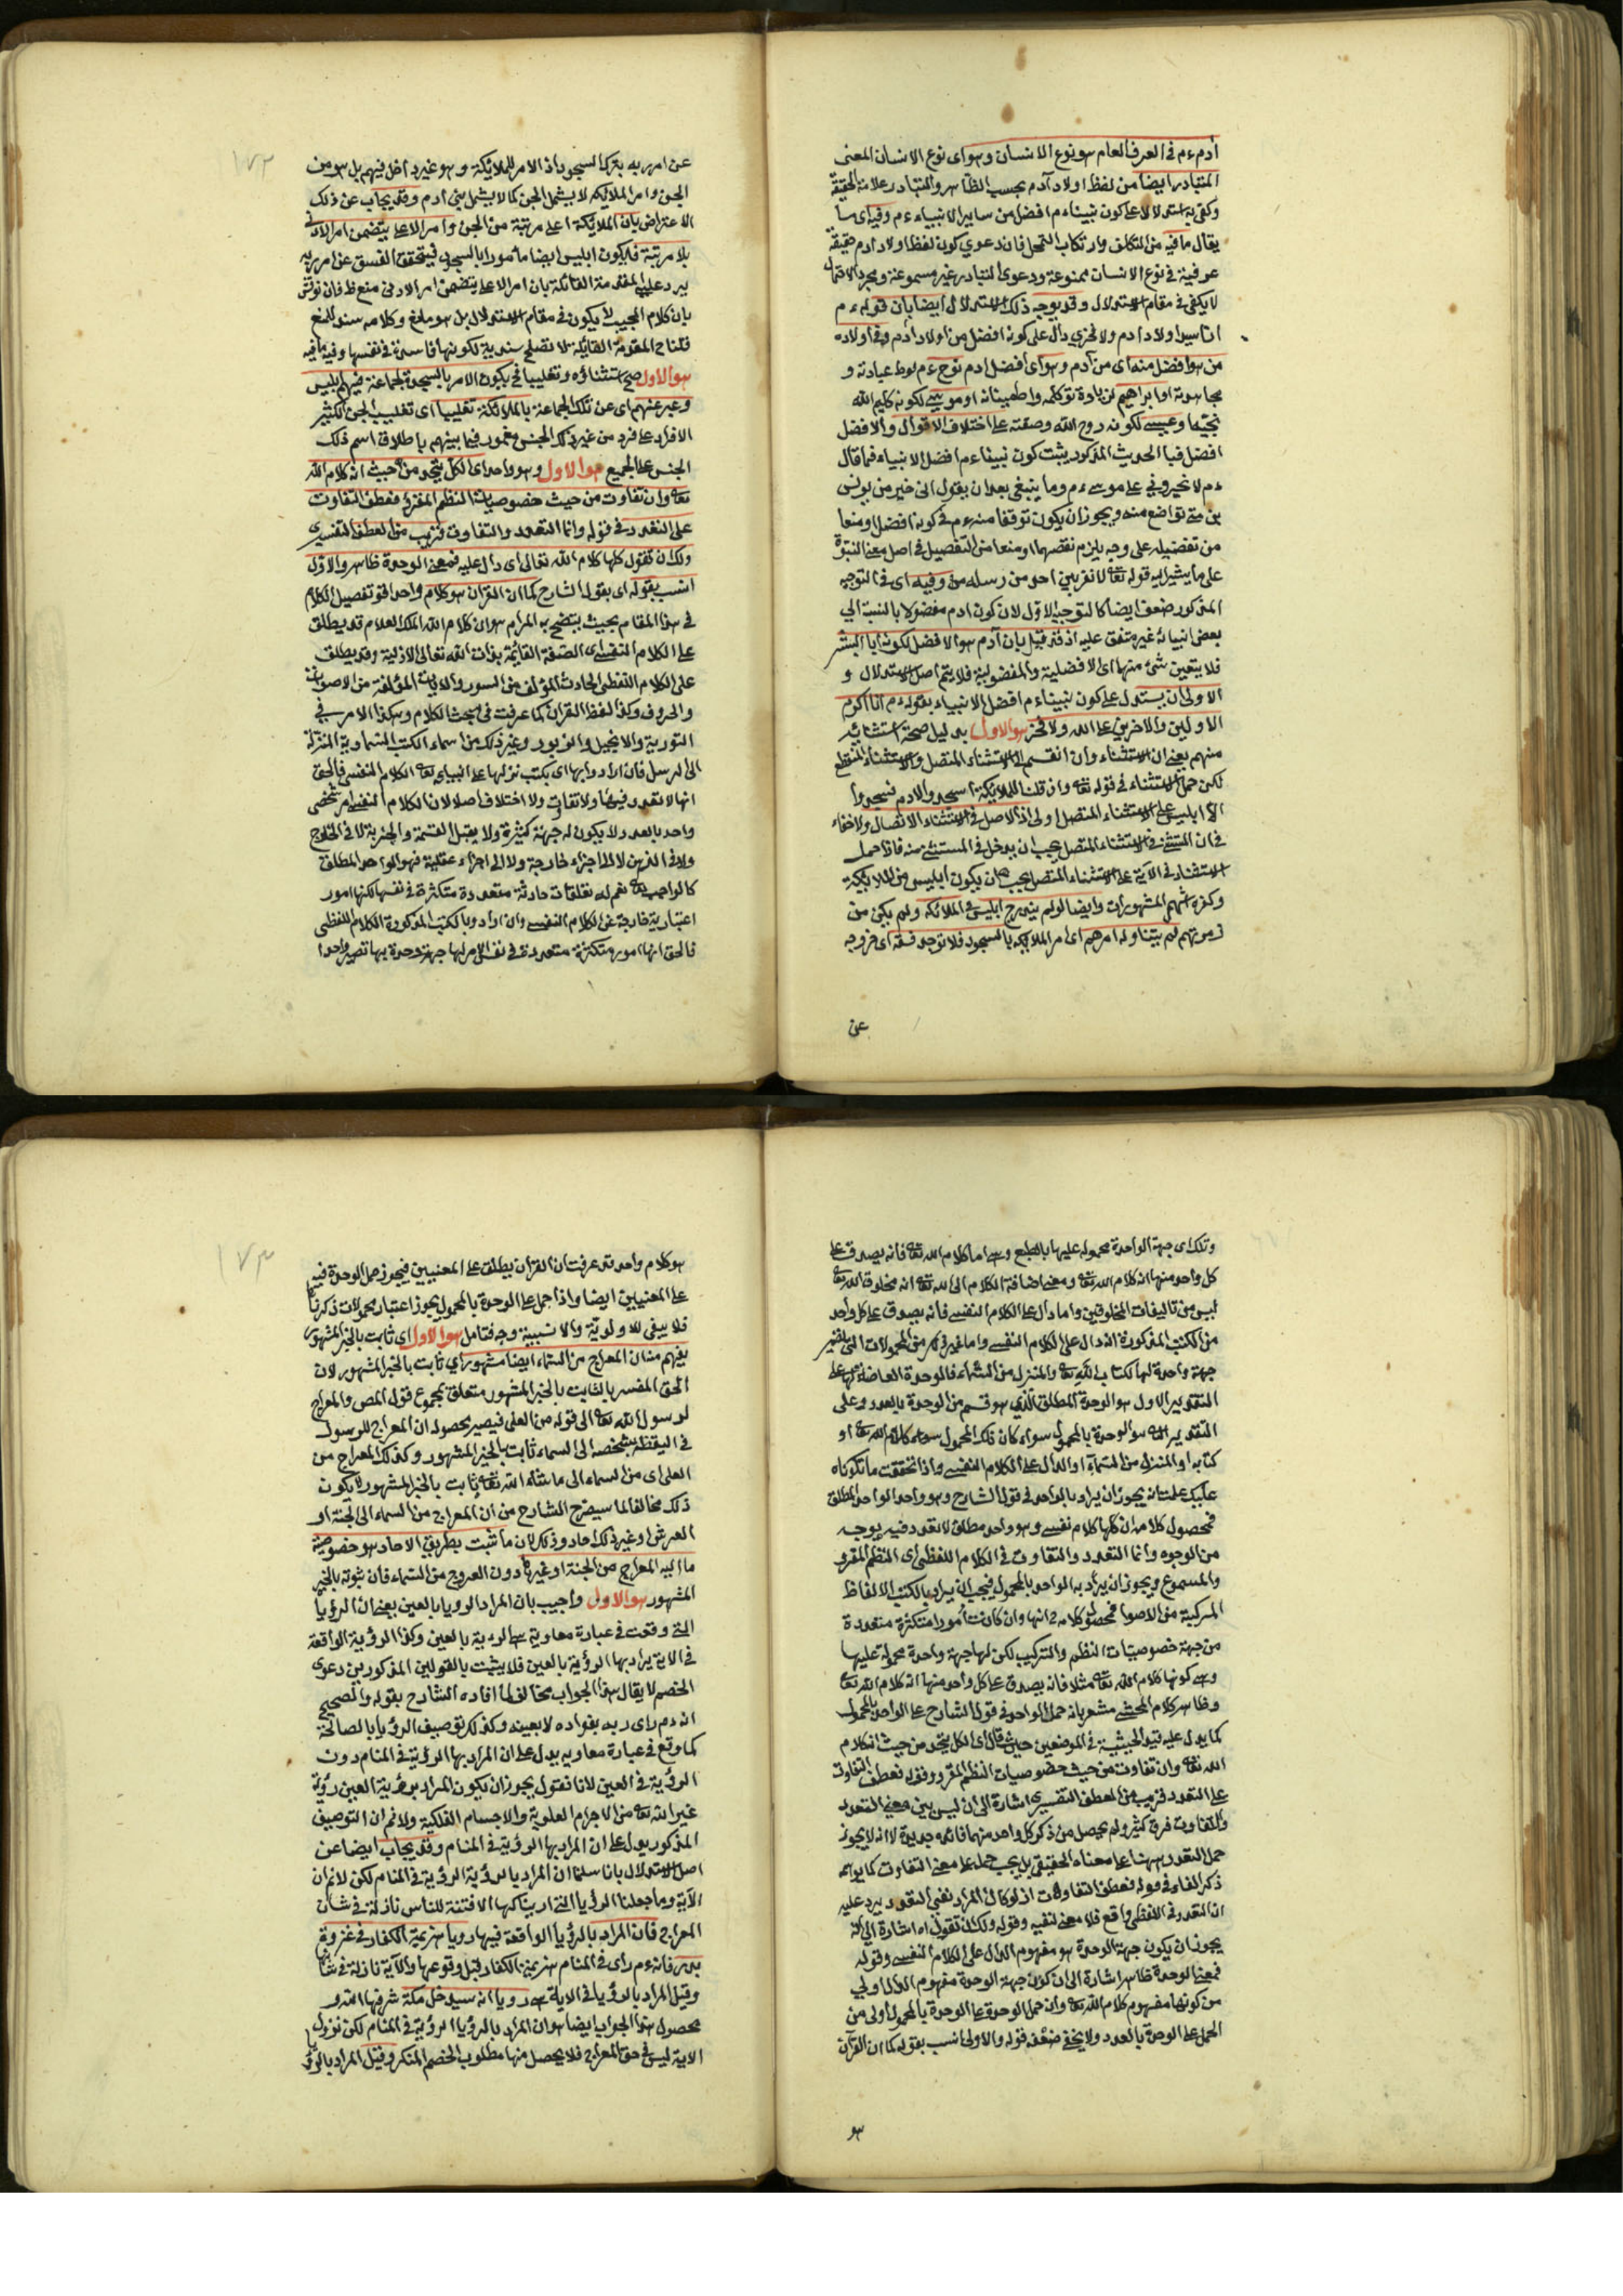 آدم ءم في العرف العام هو نوع الانسان وهو اى نوع الانسان المعنى
المتبادر ايضا من لفظ اولاد آدم بحسب الظاهر والتبادر علامة الحقيقة
وكفى به استدلالا على كون نبيناء م افضل من ساير الانبياء ءم وفيه اى ما
يقال ما فيه من التكلف وارتكاب التمحل فان دعوى كون لفظ اولاد ادم حقيقة
عرفية في نوع الانسان ممنوعة ودعوى التبادر غير مسموعة ومجرد الاحتمال
لا يكفى في مقام الاستدلال وقد يوجه ذلك الاستدلال ايضا بان قوله ءم
انا سيد اولاد ادم ولا فخر دال على كونه افضل من اولاد ادم وفي اولاده
من هو افضل منه اى من آدم وهو اى افضل ادم نوح ءم لوط عبادته و
مجاهدته او ابراهيم لزيادة توكله واطمينانه او موسى لكونه كليم الله
نجيها وعيسى لكونه روح الله وصفته على اختلاف الاقوال والافضل
افضل فبا الحديث المذكور يثبت كون نبيناءم افضل الانبياء فما قال
ءم لا تخيروني على موسى ءم وما ينبغي بعد ان يقول انى خير من يونس
بن متى تواضع منه ويجوز ان يكون توقفا منه ءم في كونه افضل او منعا
من تفضيله على وجه يلزم نقصهما او منعا من التفصيل في اصل معنى النبوة
على ما يشير اليه قوله تعالى لا نفرق بين احد من رسله من وفيه اى في التوجيه
المذكور ضعف ايضا كالتوجيه الاول لان كون ادم مفضولا بالنسبة الى
بعض انبيائه غير متفق عليه اذ قد قيل بان آدم هو الافضل لكونه ابا البشر
فلا يتعين شئ منهما اى الافضلية والمفضولية فلا يتم اصل الاستدلال و
الاولى ان يستدل على كون نبيناء م افضل الانبياء بقوله ءم انا اكرم
الاولين والاخرين على الله ولا فخر هو الاول بدليل صحة استثنائه
منهم يعني ان الاستثناء وان انقسم الى الاستثناء المتصل والاستثناء المنقطع
لكن حمل الاستثناء في قوله تعالى وان قلنا للملايكة اسجدوا لادم فسجدوا
الا ابليس على الاستثناء المتصل اولى اذ الاصل في الاستثناء الاتصال ولا خفاء
في ان المستثنى في الاستثناء المتصل يجب ان يدخل في المستثنى منه فاذا حمل
الاستثناء في الآية على الاستثناء المتصل يجب ان يكون ابليس من الملايكة
وكفره اشهر المشهورات وايضا لو لم يندرج ابليس في الملائكة ولم يكن من
زمرتهم لم يتناوله امرهم اى امر الملايكة بالسجود فلا توجد فسقه اى خروجه
عن
١٧٢
عن امر ربه بترك السجود اذ الامر للملائكة وهو غير داخل فيهم بل هو من
الجن وامر الملايكة لا يشمل الجن كما لا يشمل بنى ادم وقد يجاب عن ذلك
الاعتراض بان الملائكة اعلى مرتبة من الجن وامر الاعلى يتضمن امر الادنى
بلا مرتبة فيكون ابليس ايضا مأمورا بالسجود فيتحقق الفسق عن امر ربه
يرد على المقدمة القائلة بان امر الاعلى يتضمن امر الادنى منع ظ فان نوقش
بان كلام المجيب لا يكون في مقام الاستدلال بل هو مانع وكلامه سند للمنع
قلنا المقدمة القائلة لا تصلح سندية لكونها فاسدة في نفسها وفيه ما فيه
هو الاول صح استثناؤه وتغليبا فح يكون الامر بالسجدة لجماعة فيهم ابليس
وعبر عنهم اى عن تلك الجماعة بالملائكة تغليبا اى تغليب الجن الكثير
الافراد على فرد من غير ذلك الجنس مغمور فيما بينهم باطلاق اسم ذلك
الجنس على الجميع هو الاول وهو واحد اى الكل يتحد من حيث انه كلام الله
تعالى وان تفاوت من حيث خصوصيات النظم المقروء فعطف التفاوت
على التعدد في قوله وانما التعدد والتفاوت قريب من العطف التفسيرى
ولك ان تقول كلها كلام الله تعالى اى دال عليه فمعنى الوحدة ظاهر والاول
انسب بقوله اى بقول الشارح كما ان القرآن هو كلام واحد اقو تفصيل الكلام
في هذا المقام بحيث يتضح به المرام هو ان كلام الله الملك العلام قد يطلق
على الكلام النفسى اى الصفة القائمة بذات الله تعالى الازلية وقد يطلق
على الكلام اللفظى الحادث المؤلف من السور والايات المؤلفة من الاصوات
والحروف وكذا لفظ القرآن كما عرفت في بحث الكلام وهكذا الامر في
التورية والانجيل والزبور وغير ذلك من اسماء الكتب السماوية المنزلة
الى الرسل فان ارادوا بها اى بكتب نزلها على انبيائه تعالى الكلام النفسى فالحق
انها لا تعدد فيها ولا تفاوت ولا اختلاف اصلا لان الكلام النفسى امر شخصى
واحد بالعدد لا يكون له جهة كثيرة ولا يقبل القسمة والجزئية لا في الخارج
ولا في الذهن لا الى اجزاء خارجة ولا الى اجزاء عقلية فهو الواحد المطلق
كالواجب تعالى نعم له تعلقات حادثة متعددة متكثرة في نفسها لكنها امور
اعتبارية خارجة عن الكلام النفسى وان ارادوا بالكتب المذكورة الكلام اللفظى
فالحق انها امور متكثرة متعددة في نفس الامر لها جهة وحدة بها تصير واحدا
وتلك اى جهة الواحدة محمولة عليها بالطبع وهى اما كلام الله تعالى فانه يصدق على
كل واحد منها انه كلام الله تعالى ومعنى اضافة الكلام الى الله تعالى انه مخلوق الله تعالى
ليس من تاليفات المخلوقين واما دال على الكلام النفسى فانه يصدق على كل واحد
من الكتب المذكورة انه دال على الكلام النفسى واما غير ذلك من المحمولات التى تصير
جهة واحدة لها ككتاب الله تعالى والمنزل من السماء فالوحدة العارضة لها على
التقدير الاول هو الوحدة المطلق الذى هو قسم من الوحدة بالعدد وعلى
التقدير الثانى هو الوحدة بالمحمول سواء كان ذلك المحمول كلام الله تعالى او
كتابه او المنزل من السماء او الدال على الكلام النفسى واذا تحققت ما تلوناه
عليك علمت انه يجوز ان يراد بالواحد في قول الشارح وهو واحد الواحد المطلق
فمحصول كلامه ان كلها كلام نفسى وهو واحد مطلق لا تعدد فيه بوجه
من الوجوه وانما التعدد والتفاوت في الكلام اللفظى اى النظم المقروء
والمسموع ويجوز ان يراد به الواحد بالمحمول فيجب ان يراد بالكتب الالفاظ
المركبة من الاصوات فمحصول كلامه ح انها وان كانت امورا متكثرة متعددة
من جهة خصوصيات النظم والتركيب لكن لها جهة واحدة محمولة عليها
وهى كونها كلام الله تعالى مثلا فانه يصدق على كل واحد منها انه كلام الله تعالى
وظاهر كلام المحشى مشعر بانه حمل الواحد في قول الشارح على الواحد بالمحمول
كما يدل عليه قيد الحيثية في الموضعين حيث قال اى الكل يتحد من حيث انه كلام
الله تعالى وان تفاوت من حيث خصوصيات النظم المقروء وقوله فعطف التفاوت
على التعدد قريب من العطف التفسيرى اشارة الى ان ليس بين معنى التعدد
والتفاوت فرق كثير ولم يحصل من ذكر كل واحد منهما فائدة جديدة لا انه لا يجوز
حمل التعدد ههنا على معناه الحقيقى بل يجب حمله على معنى التفاوت كما يوهمه
ذكر الفاء في قوله فعطف التفاوت اذ لو كان المراد نفى التعدد يرد عليه
ان التعدد في اللفظى واقع فلا معنى لنفيه وقوله ولك ان تقول اه اشارة الى انه
يجوز ان يكون جهة الوحدة هو مفهوم الدال على الكلام النفسى وقوله
فمعنى الوحدة ظاهر اشارة الى ان كون جهة الوحدة مفهوم الدال اولى
من كونها مفهوم كلام الله تعالى وان حمل الوحدة على الوحدة بالمحمول اولى من
الحمل على الوحدة بالعدد ولا يخفى ضعفه قوله والاولى انسب بقوله كما ان القرآن
هو
١٧٣
هو كلام واحد قد عرفت ان القرآن يطلق على المعنيين فيجوز حمل الوحدة فيه
على المعنيين ايضا واذا حمل على الوحدة بالمحمول يجوز اعتبار محمولات ذكرناها
فلا يبقى للاولوية والانسبية وجه فتامل هو الاول اى ثابت بالخبر المشهور
يفهم منه ان المعراج من السماء ايضا مشهور اي ثابت بالخبر المشهور لان
الحق المفسر بالثابت بالخبر المشهور متعلق بمجموع قول المص والمعراج
لرسول الله تعالى الى قوله من العلى فيصير محصوله ان المعراج للرسول
في اليقظة بشخصه الى السماء ثابت بالخبر المشهور وكذلك المعراج من
العلى اى من السماء الى ما شاء الله تعالى ثابت بالخبر المشهور لا يكون
ذلك مخالفا لما سيصرح الشارح من ان المعراج من السماء الى الجنة او
العرش او غير ذلك احاد وذلك لان ما ثبت بطريق الاحاد هو خصوصية
ما اليه المعراج من الجنة او غيرها دون العروج من السماء فان ثبوته بالخبر
المشهور هو الاول واجيب بان المراد الرويا بالعين يعنى ان الرؤيا
التى وقعت في عبارة معاوية هى الرؤية بالعين وكذا الرؤية الواقعة
في الاية يراد بها الرؤية بالعين فلا يثبت بالقولين المذكورين دعوى
الخصم لا يقال هذا الجواب مخالف لما افاده الشارح بقوله والصحيح
انه ءم راى ربه بفواده لا بعينه وكذلك توصيف الرؤيا بالصالحة
كما وقع في عبارة معاويه يدل على ان المراد بها الرؤية في المنام دون
الرؤية في العين لانا نقول يجوز ان يكون المراد برؤية العين رؤية
غير الله تعالى من الاجرام العلوية والاجسام الفلكية ولا نم ان التوصيف
المذكور يدل على ان المراد بها الرؤية في المنام وقد يجاب ايضا عن
اصل الاستدلال بانا سلمنا ان المراد بالرؤية الرؤية في المنام لكن لا نم ان
الآية وما جعلنا الرؤيا التى اريناكها الا فتنة للناس نازلة في شان
المعراج فان المراد بالرؤيا الواقعة فيها رويا هزيمة الكفار في غزوة
بدر فانه ءم راى في المنام هزيمة الكفار قبل وقوعها والآية نازلة في شانها
وقيل المراد بالرؤيا في الاية هى رويا انه سيدخل مكة شرفها الله و
محصول هذا الجواب ايضا هو ان المراد بالرؤيا الرؤية في المنام لكن نزول
الاية ليس في حق المعراج فلا يحصل منها مطلوب الخصم المنكر وقيل المراد بالرؤيا